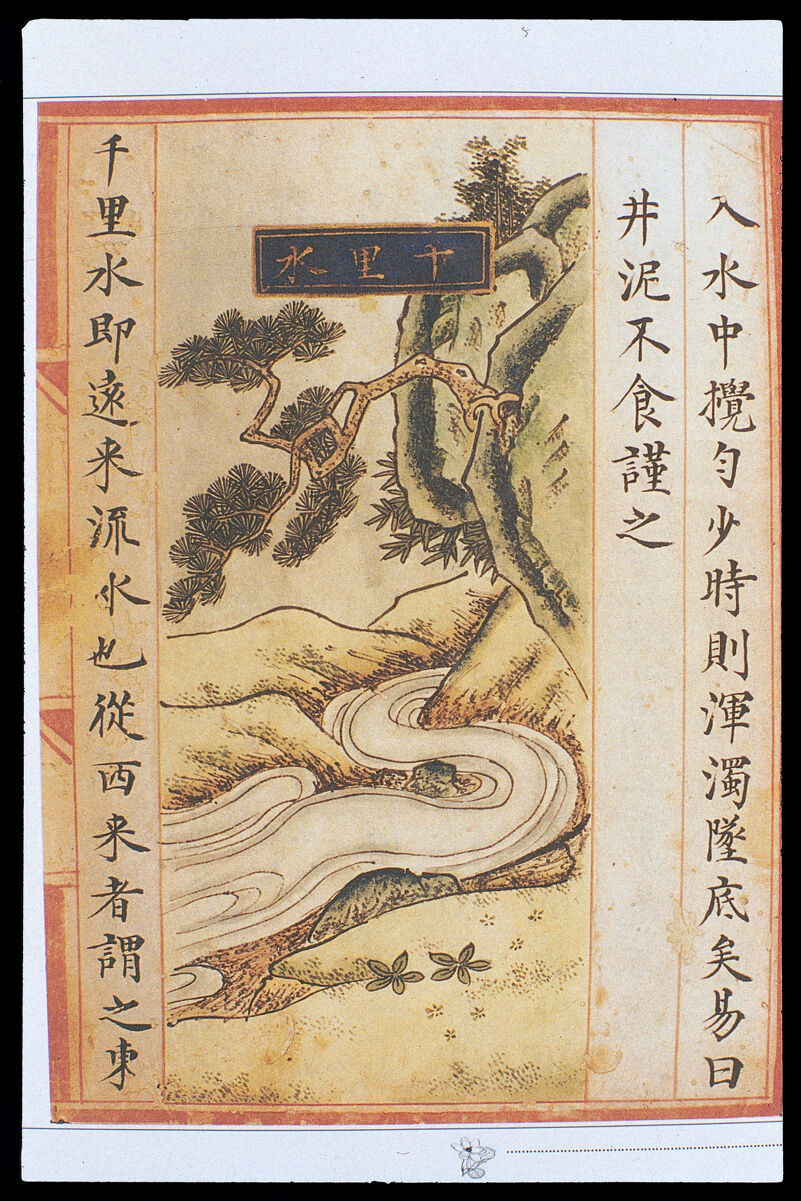 入水中攪勻少時則渾濁墜底矣易曰
井泥不食謹之
十里水
千里水即遠来流水也從西来者謂之東